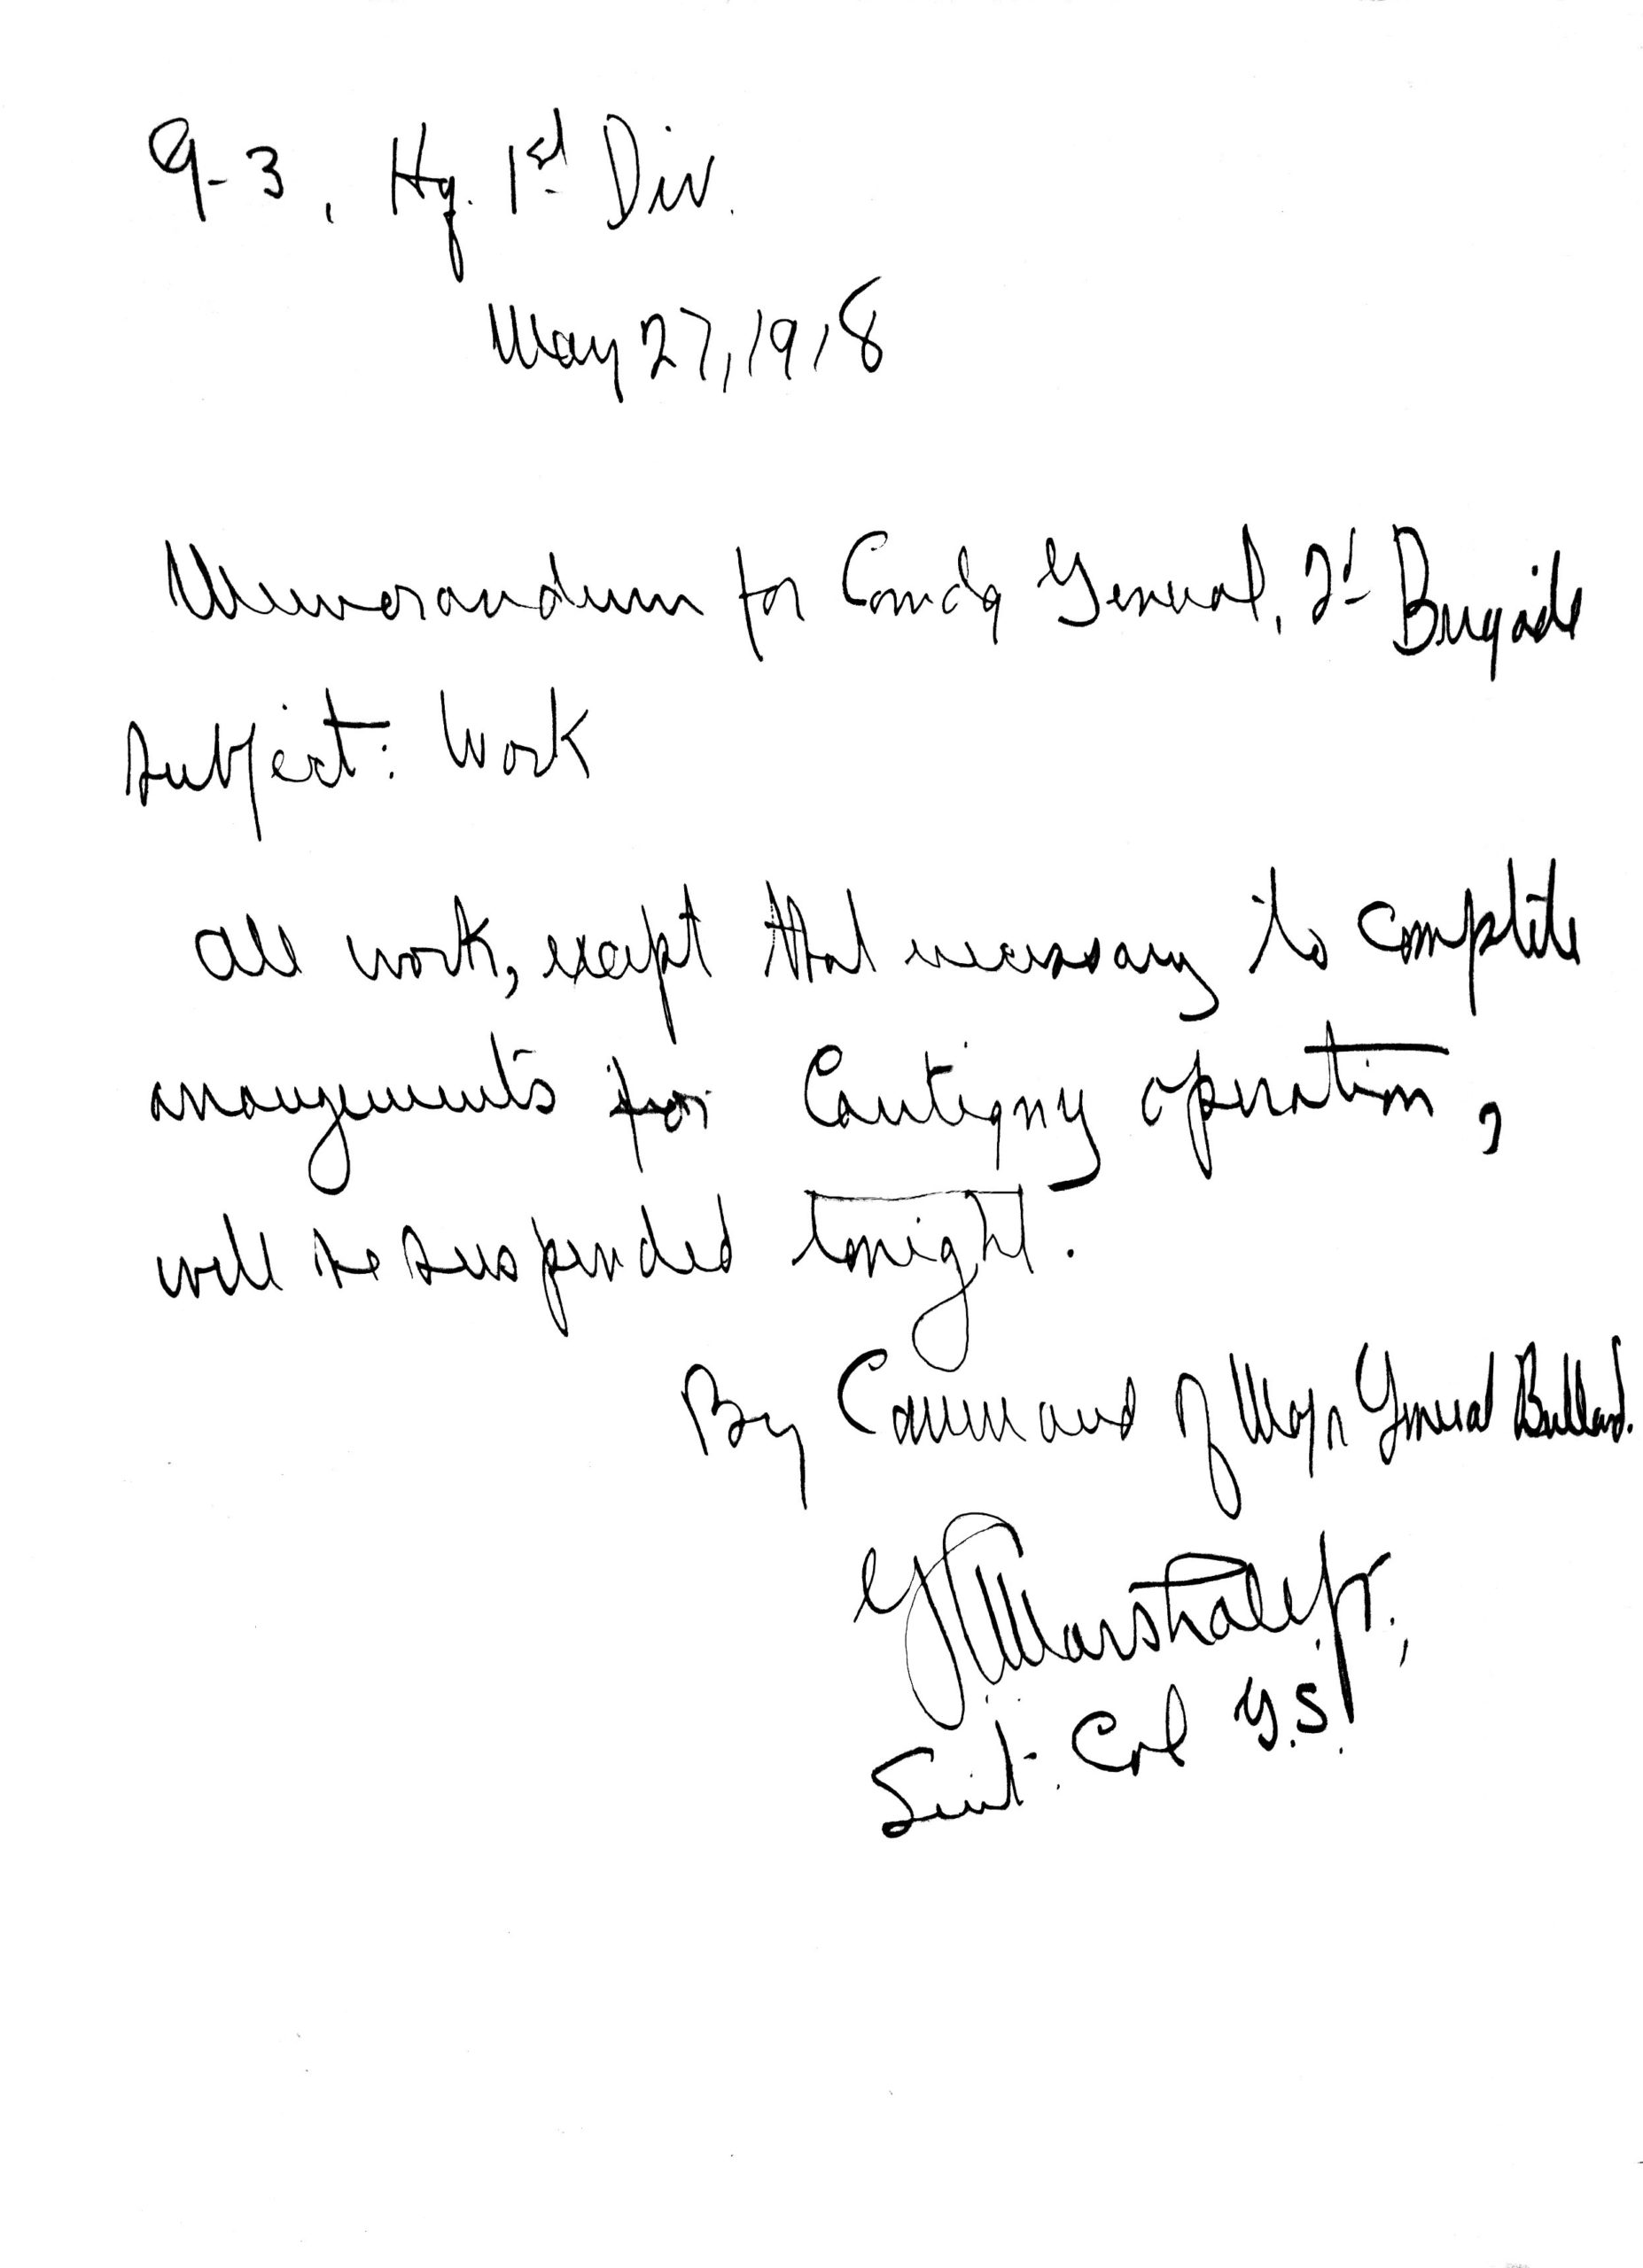 G-3, Hq. 1st Div.
May 27, 1918
Memorandum for Comdg General, 2d Brigade
Subject: Work
All work, except that necessary to complete
arrangements for Cantigny operation,
will be suspended tonight.
By Command of Major General Bullard.
G C Marshall Jr.,
Lieut. Col G.S.